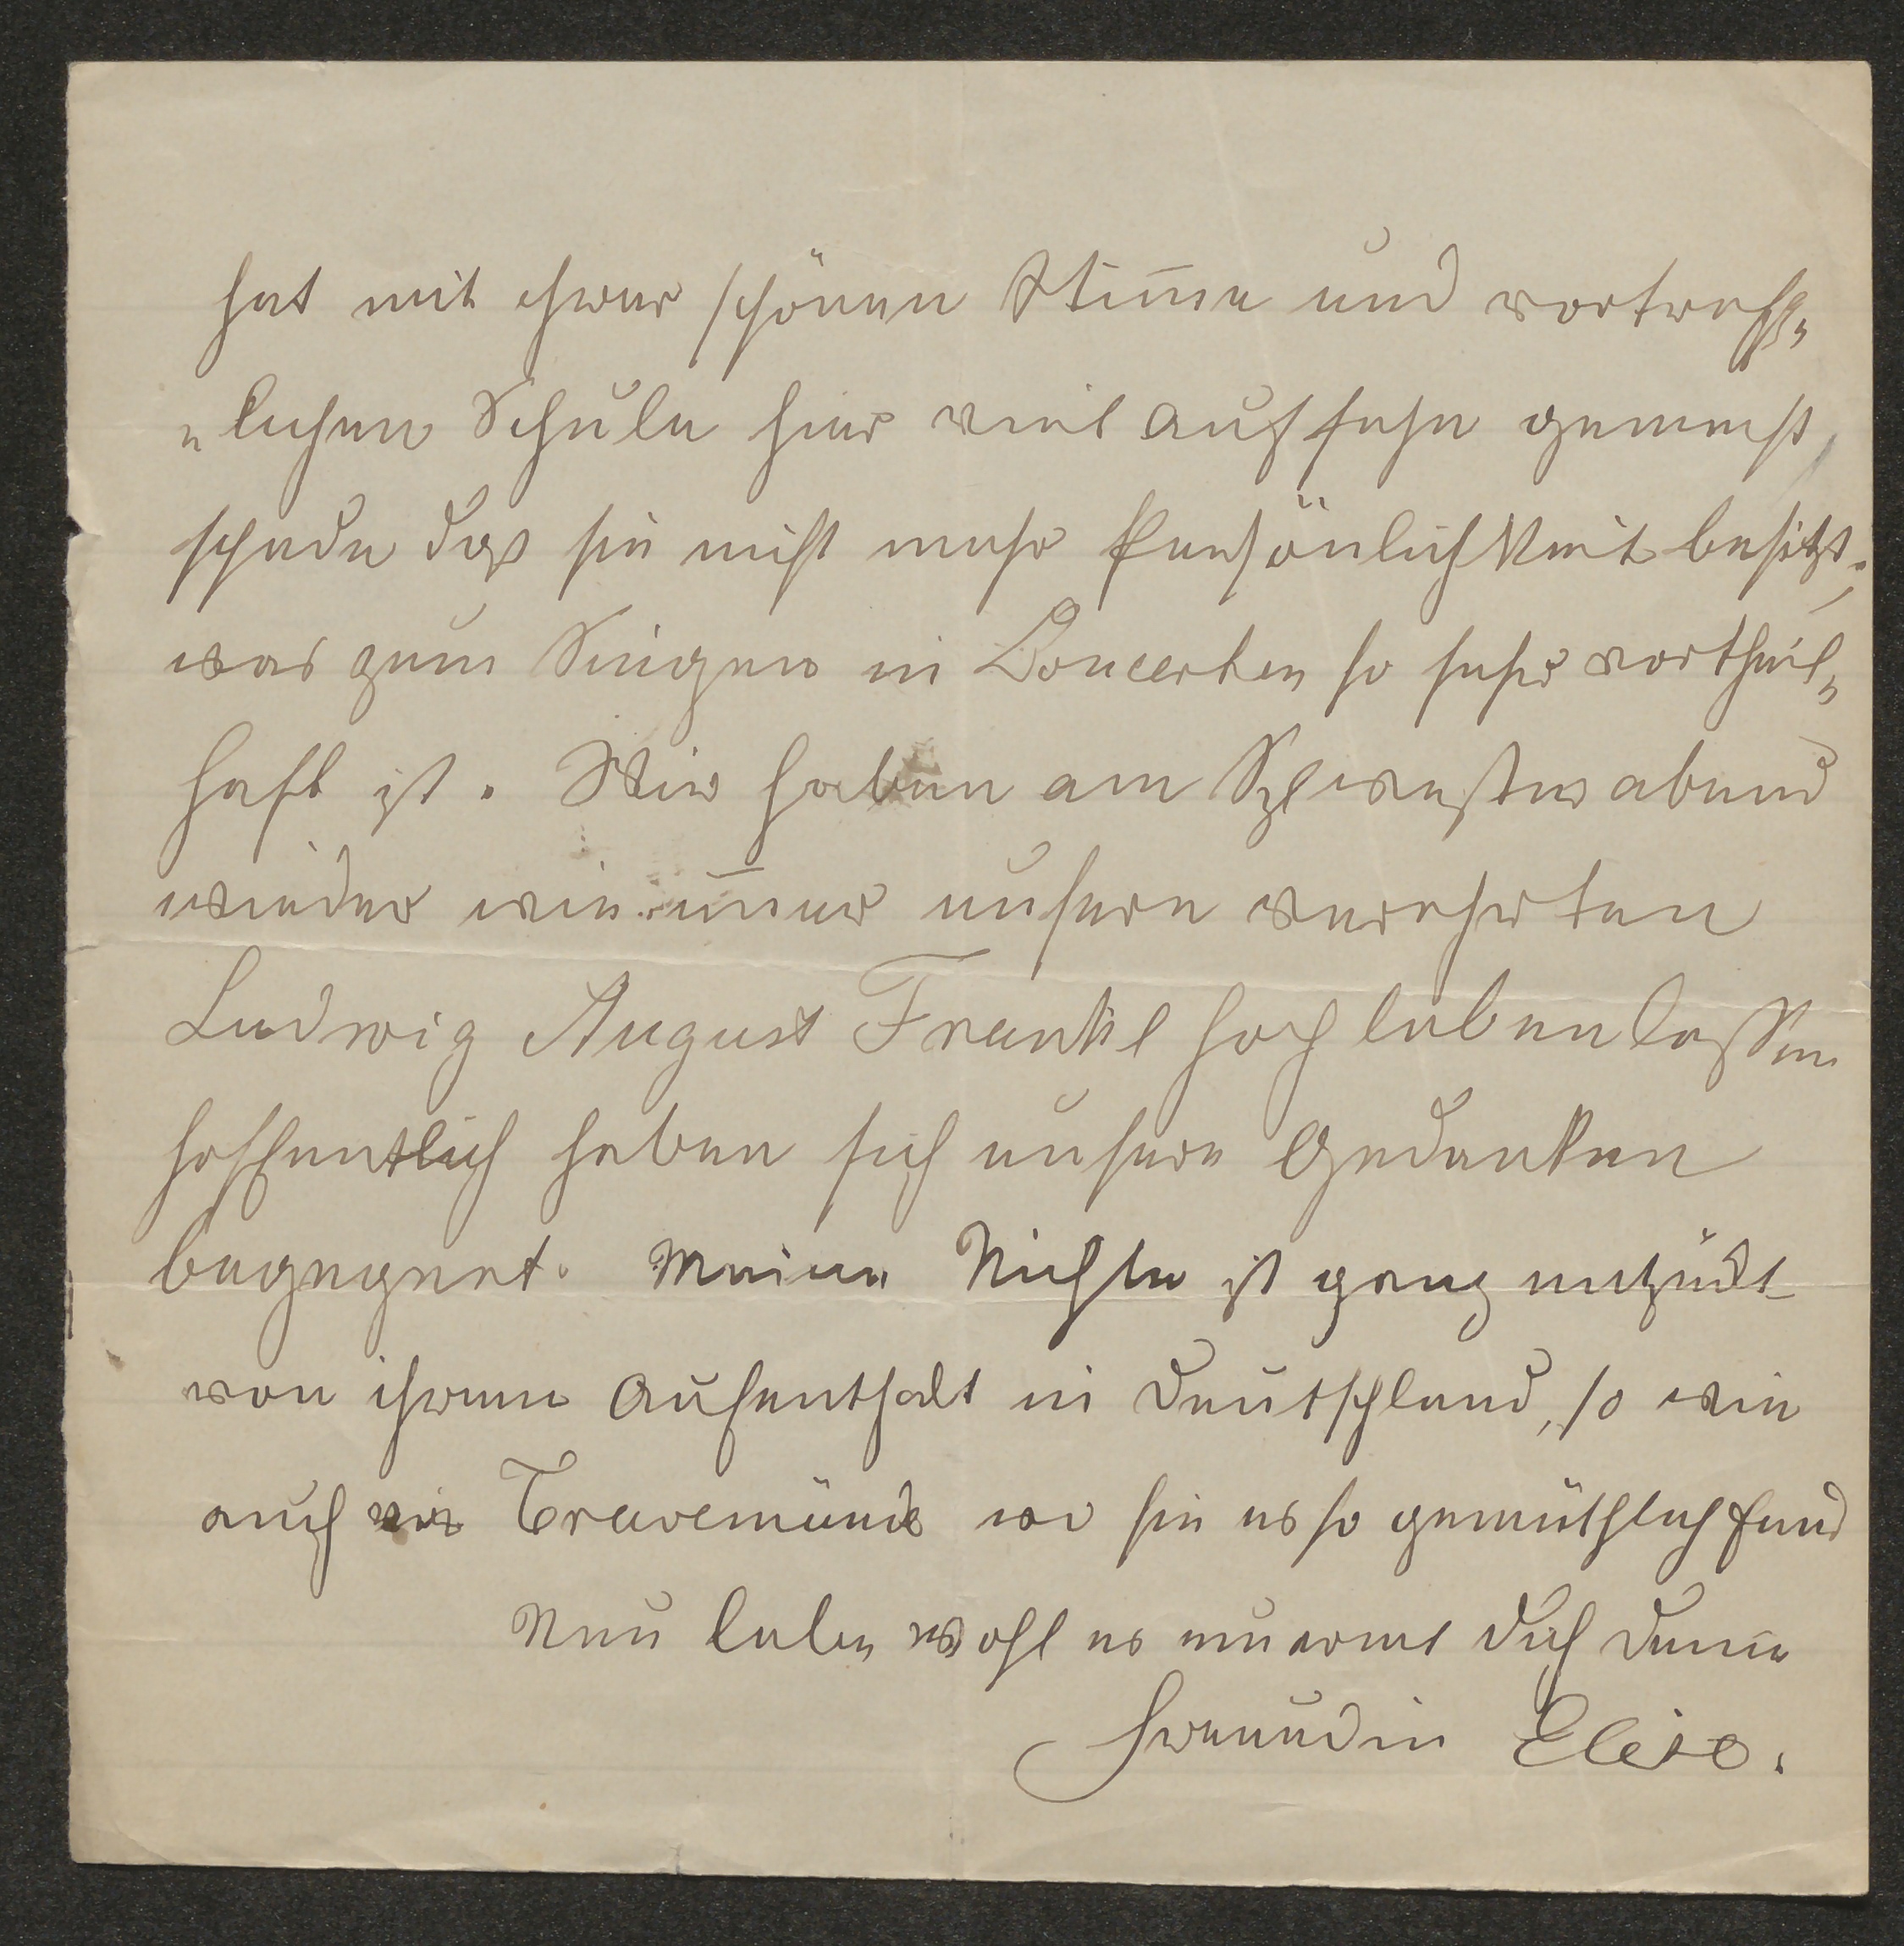 hat mit ihrer schönen Stim̄e und vortreff„
„lichen Schule hier viel Aufsehn gemacht,
schade daß sie nicht mehr Persönlichkeit besitzt,
was zum Singen in Concerten so sehr vortheil„
haft ist. Wir haben am Sylvesterabend
wieder wie im̄er unsern verehrten
Ludwig August Frankl hoch leben laßen
hoffentlich haben sich unsere Gedanken
begegnet. Meine Nichte ist ganz entzückt
von ihrem Aufenthalt in Deutschland, so wie
auch Travemünde wo sie es so gemüthlich fand
Nun lebe wohl es umarmt dich deine
Freundin Elise.